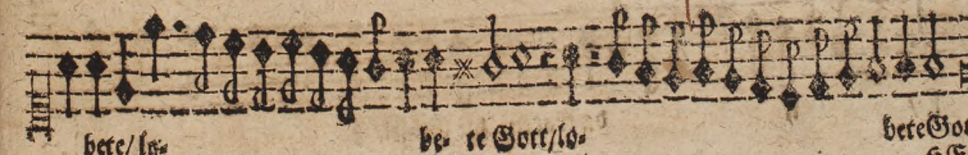 bete/ lo- be- te Gott/lo- beteGo